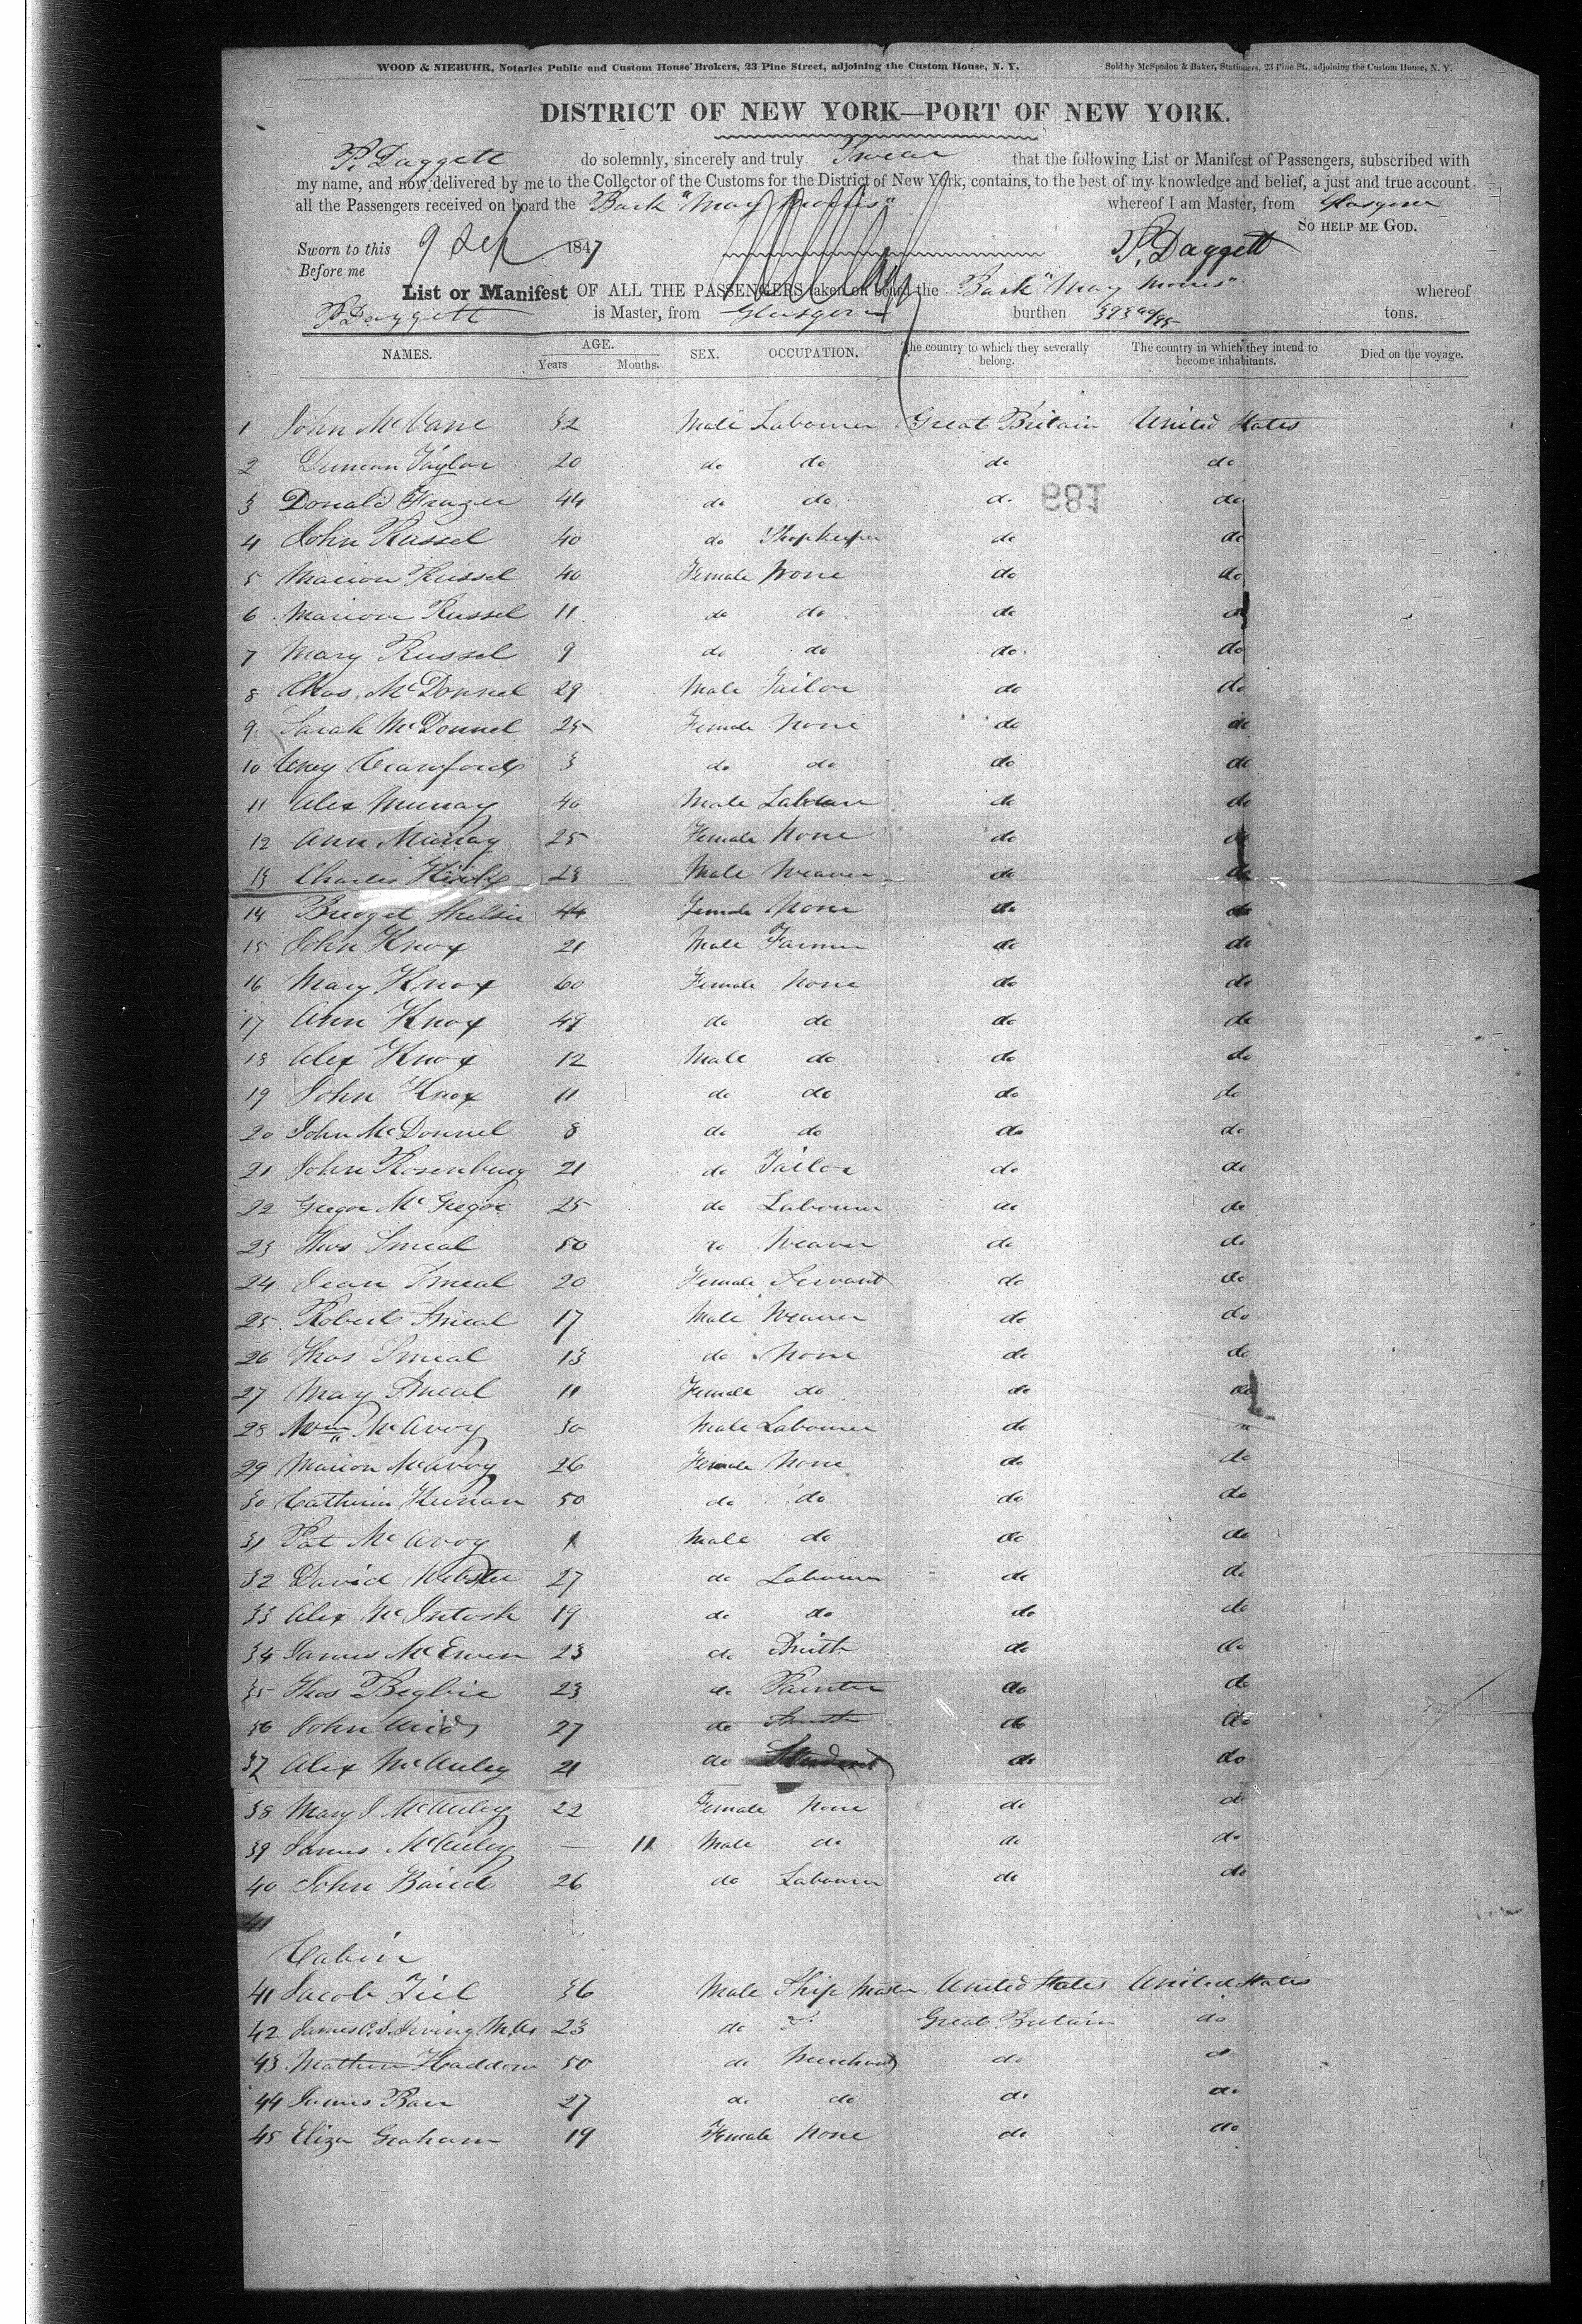 WOOD & NIEBUHR, Notaries Public and Custom House Brokers, 23 Pine Street, adjoining the Custom House, N. Y. Sold by McSpedon & Baker, Stationers, 23 Pine St., adjoining the Custom House, N. Y.
DISTRICT OF NEW YORK—PORT OF NEW YORK.
P. Daggett do solemnly, sincerely and truly Swear that the following List or Manifest of Passengers, subscribed with
my name, and now delivered by me to the Collector of the Customs for the District of New York, contains, to the best of my knowledge and belief, a just and true account
all the Passengers received on board the Bark "May Morris" whereof I am Master, from Glasgow
SO HELP ME GOD.
Sworn to this 9 Sep 1847 P. Daggett
Before me
List or Manifest OF ALL THE PASSENGERS taken on board the Bark "May Morris" whereof
P Daggett is Master, from Glasgow burthen 393 tons.
NAMES. AGE. SEX. OCCUPATION. The country to which they severally belong. The country in which they intend to become inhabitants. Died on the voyage.
Years Months.
1 John McVane 32 Male Labourer Great Britain United States
2 Duncan Taylor 20 do do do do
3 Donald Frazer 44 do do do do
681
4 John Russel 40 do Shopkeeper do do
5 Marion Russel 40 Female None do do
6 Marion Russel 11 do do do do
7 Mary Russel 9 do do do do
8 Chas. McDonnel 29 Male Tailor do do
9 Sarah McDonnel 25 Female None do do
10 Crawford 3 do do do do
11 Alex Murray 40 Male Labourer do do
12 Ann Murray 25 Female None do do
13 Charles 23 Male Weaver do do
14 Bridget 44 Female None do do
15 John Knox 21 Male Farmer do do
16 Mary Knox 60 Female None do do
17 Ann Knox 49 do do do do
18 Alex Knox 12 Male do do do
19 John Knox 11 do do do do
20 John McDonnel 8 do do do do
21 John Rosenburg 21 do Tailor do do
22 Gregor McGregor 25 do Labourer do do
23 Thos Smeal 50 do Weaver do do
24 Jean Smeal 20 Female Servant do do
25 Robert Smeal 17 Male Weaver do do
26 Thos Smeal 13 do None do do
27 May Smeal 11 Female do do do
28 Wm McAvoy 30 Male Labourer do do
29 Marion McAvoy 26 Female None do do
30 Catherin Keenan 50 do do do do
31 Pat McAvoy 1 Male do do do
32 David Webster 27 do Labourer do do
33 Alex McIntosh 19 do do do do
34 James McEwen 23 do Smith do do
35 Thos Begbie 23 do Painter do do
36 John 27 do Smith do do
37 Alex McAuley 21 do Student do do
38 Mary J McAuley 22 Female None do do
39 James McAuley — 11 Male do do do
40 John Baird 26 do Labourer do do
41
Cabin
41 Jacob 36 Male Ship Master United States United States
42 James Irving 23 do Great Britain do
43 Mathew Haddow 50 do Merchant do do
44 James Barr 27 do do do do
45 Eliza Graham 19 Female None do do